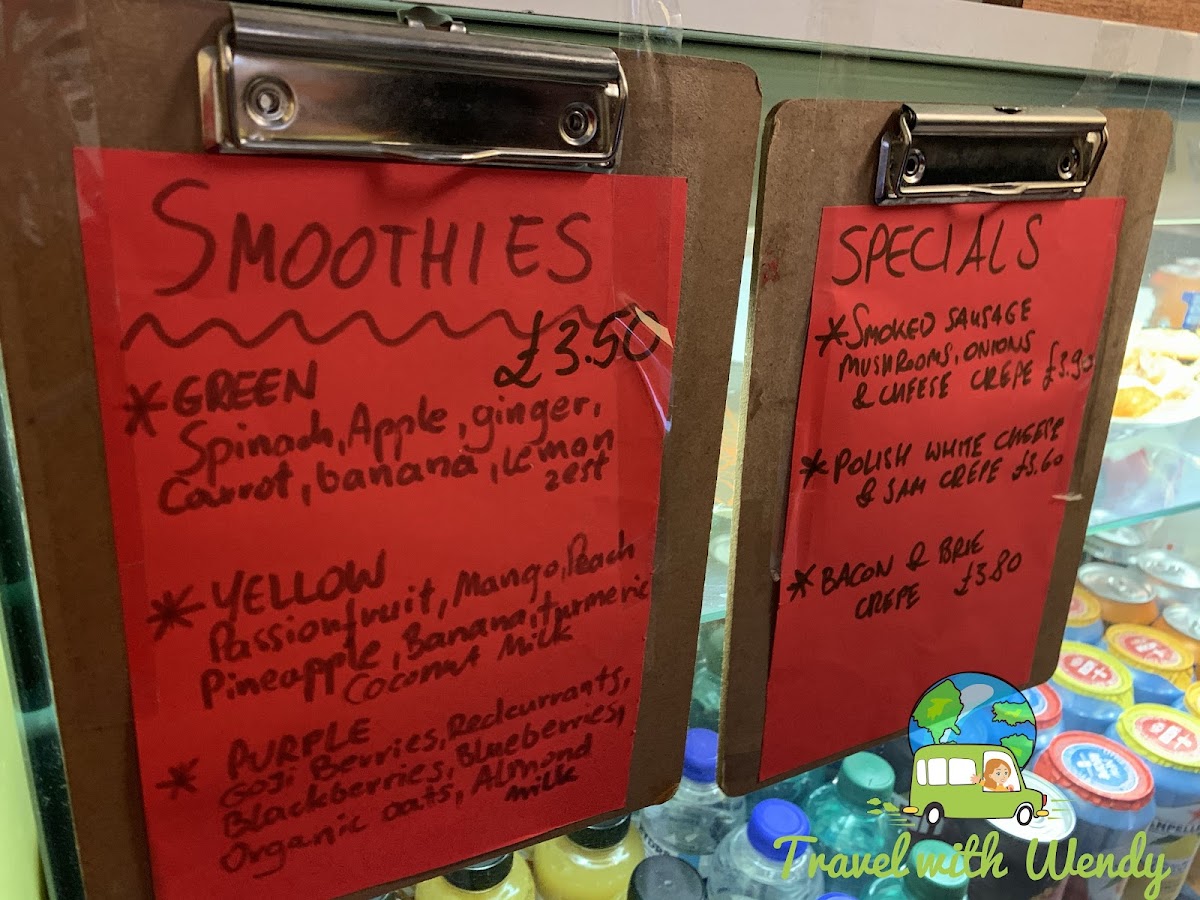 SMOOTHIES
£3.50
*GREEN
Spinach, Apple, ginger,
Carrot, banana, lemon
zest
*YELLOW
Passionfruit, Mango, Peach
Pineapple, Banana, turmeric
Coconut Milk
* PURPLE
GOJI Berries, Redcurrants,
Blackberries, Blueberries,
Organic oats, Almond
milk
SPECIALS
*SMOKED SAUSAGE
MUSHROOMS, ONIONS
& CHEESE CREPE £3.90
*POLISH WHITE CHEESE
& JAM CREPE £3.60
*BACON & BRIE
CREPE £3.80
Travel with Wendy